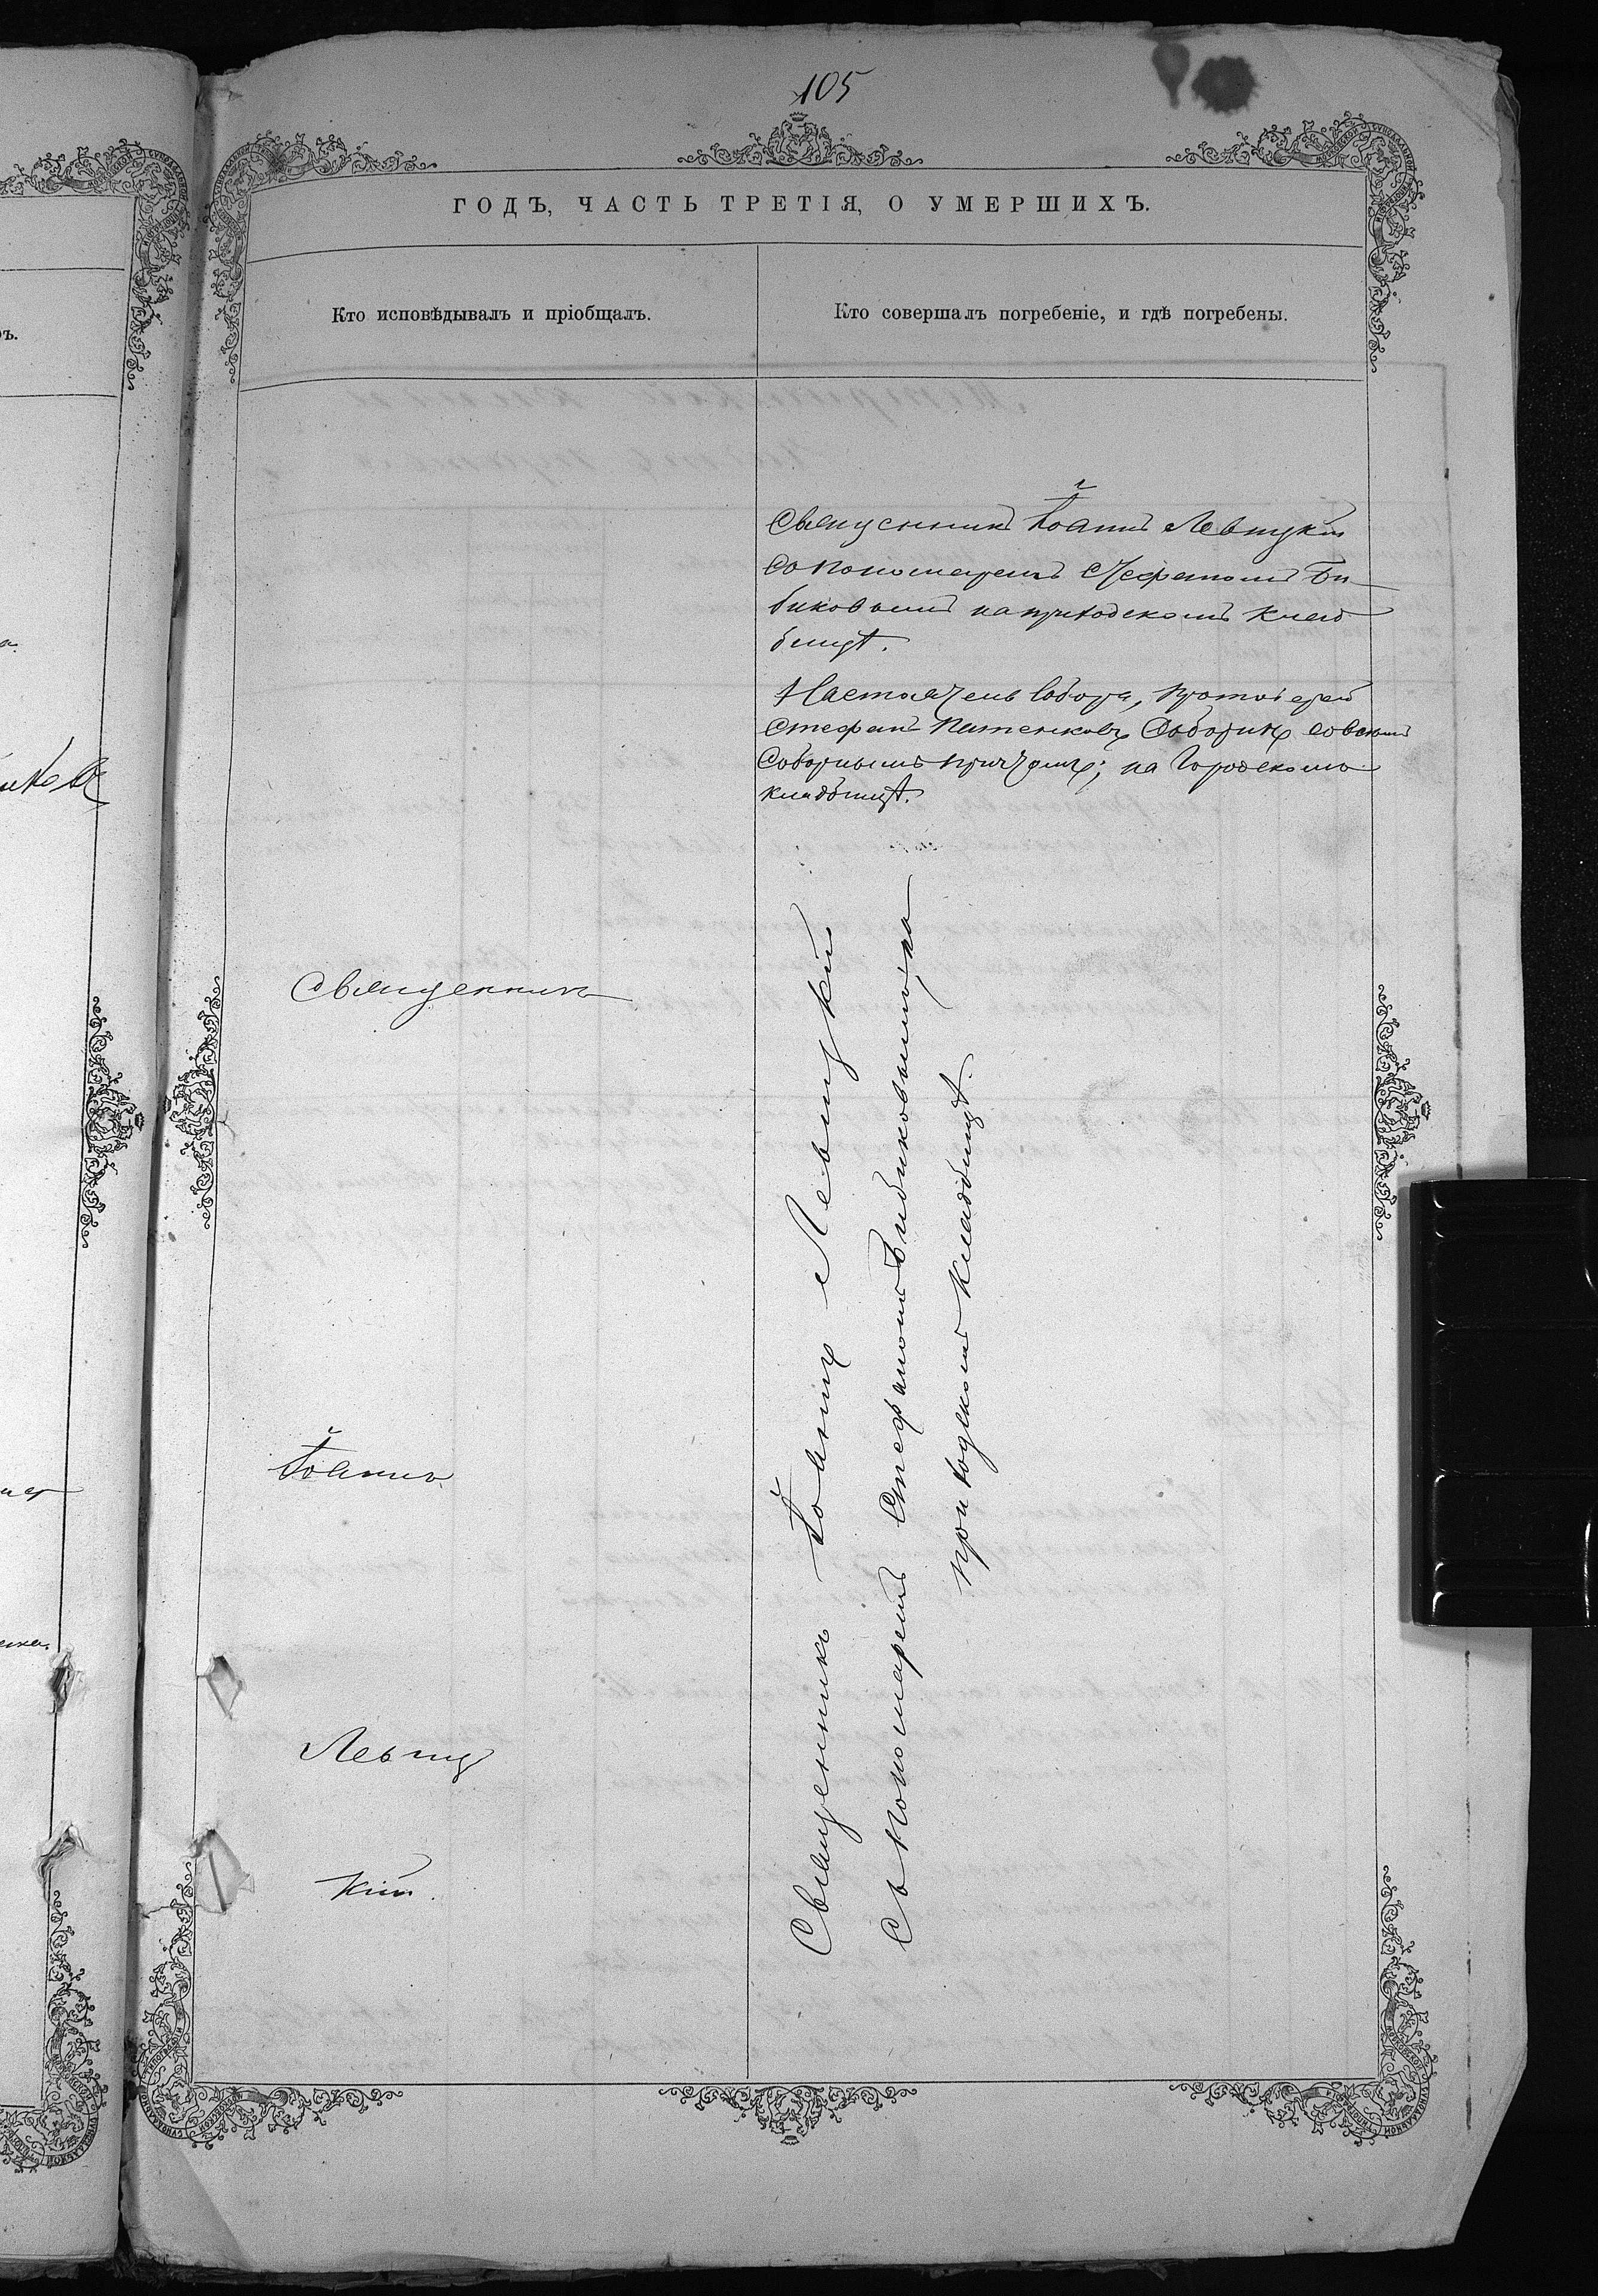 105
ГОДЪ, ЧАСТЬ ТРЕТІЯ, О УМЕРШИХЪ.
Кто исповѣдывалъ и пріобщалъ.
Кто совершалъ погребеніе, и гдѣ погребены.
Священникъ Іоаннъ Левицкій
со пономаремъ Стефаномъ Би-
биковымъ на приходскомъ клад
бищѣ.
Настоятель Собора, протоіерей
Стефан Соборнѣ со всемъ
Соборнымъ причтомъ; на Городскомъ
кладбищѣ.
Священникъ
Іоаннъ
Левиц
кій.
Священникъ Іоаннъ Левицкій
Съ пономаремъ Стефаномъ Бибиковымъ, на
приходскомъ кладбищѣ.